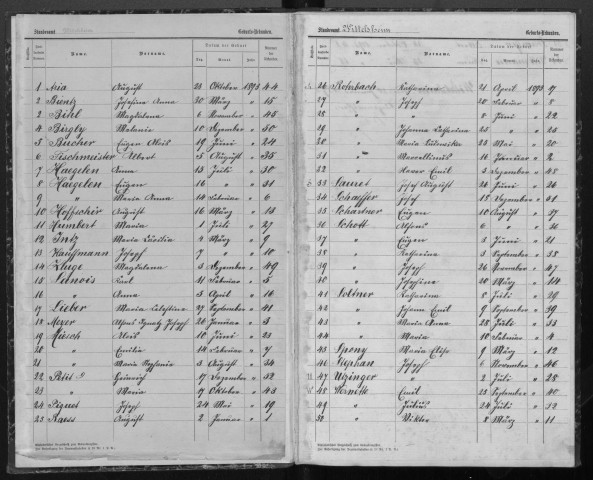 Standesamt Geburts-Urkunden.
Name. Vorname. Datum der Geburt
1 Aria August 23 Oktober 1893 44
2 Buntz Josefine Anna 30 März " 15
3 Bihl Magdalena 6 November " 45
4 Birgly Melanie 10 Dezember " 50
5 Bucher Eugen Alois 19 Juni " 24
6 Fischmeister Albert 5 August " 35
7 Haegelen Anna 13 Juli " 30
8 Haegelen Eugen 16 " " 31
9 " Maria Anna 14 Februar " 6
10 Hoffschir August 16 März " 13
11 Humbert Maria 1 Juli " 27
12 Intz Maria Cäcilia 4 März " 9
13 Kauffmann Joseph 7 " " 10
14 Kluge Magdalena 3 Dezember " 49
15 Lunois Karl 11 Februar " 5
16 " Anna 3 April " 16
17 Lieber Maria Celestine 27 September " 41
18 Meyer Alfons Ignatz Joseph 26 Januar " 3
19 Münch Alois 10 Juni " 23
20 " Emilie 14 Februar " 7
21 " Maria Stefania 3 August " 34
22 Petit Heinrich 17 Dezember " 52
23 " Maria 9 Oktober " 43
24 Piquet Joseph 24 Mai " 19
25 Raess August 2 Januar " 1
Standesamt Wittelsheim Geburts-Urkunden.
Name. Vorname. Datum der Geburt
26 Rohrbach Katharina 21 April 1893 17
27 " Joseph 20 Februar " 8
28 " " 8 Juni " 22
29 " Johanna Katharina 23 " " 25
30 " Maria Ludwika 22 Mai " 20
31 " Marcellinus 16 Januar " 2
32 " Xaver Emil 3 Dezember " 48
33 Lauret Josef August 26 Juni " 26
34 Schaeffer Josef 18 Dezember " 51
35 Schartner Eugen 10 August " 37
36 Schott Alfons 6 " " 36
37 " Eugen 3 Juni " 21
38 " Katharina 3 September " 38
39 " Joseph 26 November " 47
40 " Josephina 20 März " 14
41 Soldner Katharina 8 Juli " 29
42 " Johann Emil 9 September " 39
43 " Maria Anna 28 Juli " 33
44 " Maria 10 Februar " 4
45 Spony Maria Elise 9 März " 12
46 Stephan Joseph 6 November " 46
47 Utzinger " 2 Juli " 28
48 Emil 23 September " 40
49 " Julius 24 Juli " 32
50 " Viktor 8 März " 11